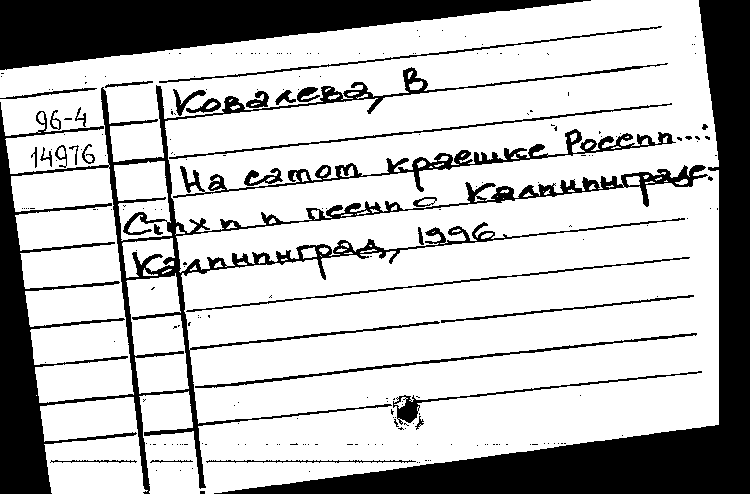 96-4
14976
Ковалева, В
На самом краешке России...:
Стихи и песни о Калининграде.-
Калининград, 1996.